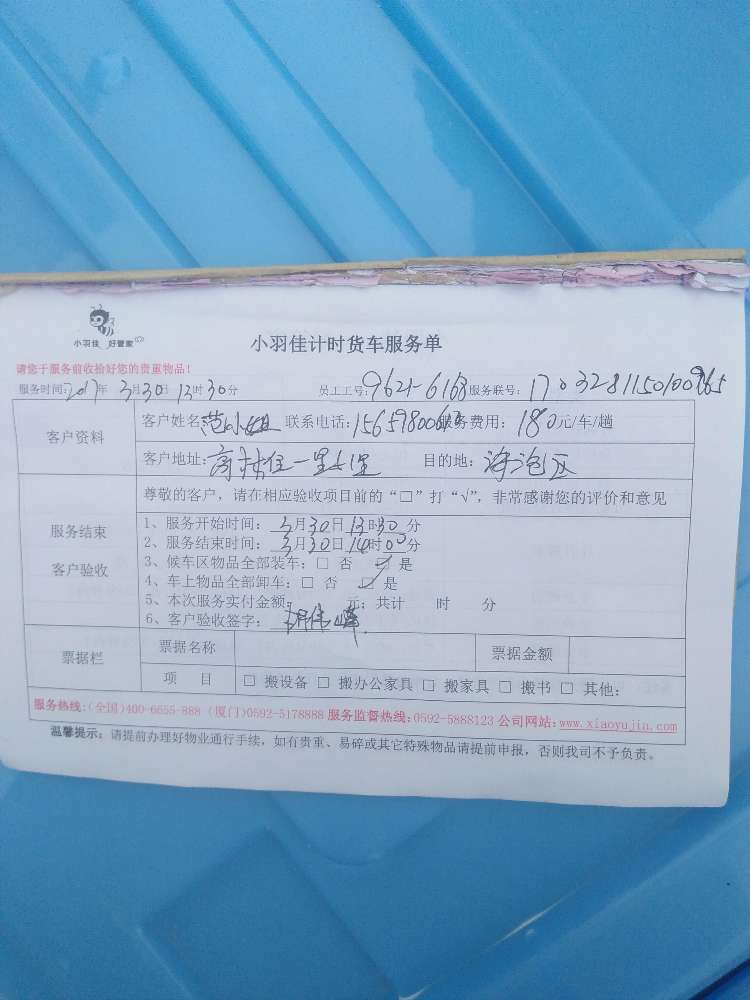 小羽佳 好管家
小羽佳计时货车服务单
请您于服务前收拾好您的贵重物品!
服务时间: 2017年 3月30日 13时30分 员工工号: 9621-6168 服务联号: 170328115010096
客户资料
客户姓名: 范小姐 联系电话: 服务费用: 180元/车/趟
客户地址: 高林 目的地: 海沧区
服务结束
客户验收
尊敬的客户，请在相应验收项目前的“□”打“√”，非常感谢您的评价和意见
1、服务开始时间: 3月30日13时30分
2、服务结束时间: 3月30日14时00分
3、候车区物品全部装车: □ 否 ☑ 是
4、车上物品全部卸车: □ 否 ☑ 是
5、本次服务实付金额: 元; 共计 时 分
6、客户验收签字: 胡伟峰
票据栏
票据名称 票据金额
项 目 □ 搬设备 □ 搬办公家具 □ 搬家具 □ 搬书 □ 其他:
服务热线:(全国)400-6655-888 (厦门)0592-5178888 服务监督热线:0592-5888123 公司网站:www.xiaoyujia.com
温馨提示: 请提前办理好物业通行手续，如有贵重、易碎或其它特殊物品请提前申报，否则我司不予负责。